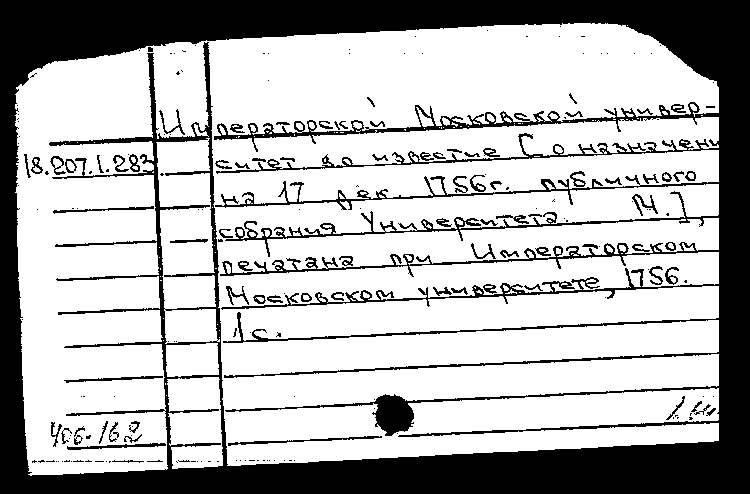 Императорской Московской универ-
18.207.1.283 ситет во известие [о назначени
на 17 дек. 1756г. публичного
собрания Университета. М.],
печатана при Императорском
Московском университете, 1756.
1 с.
406-162